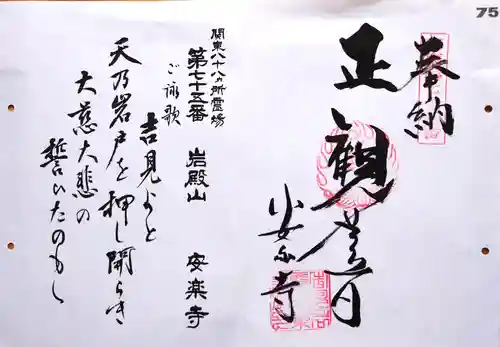 75
奉納
正観世音
安楽寺
関東八十八ヵ所霊場
第七十五番 岩殿山 安楽寺
ご詠歌
吉見よと
天乃岩戸を押し開らき
大慈大悲の
誓ひたのもし